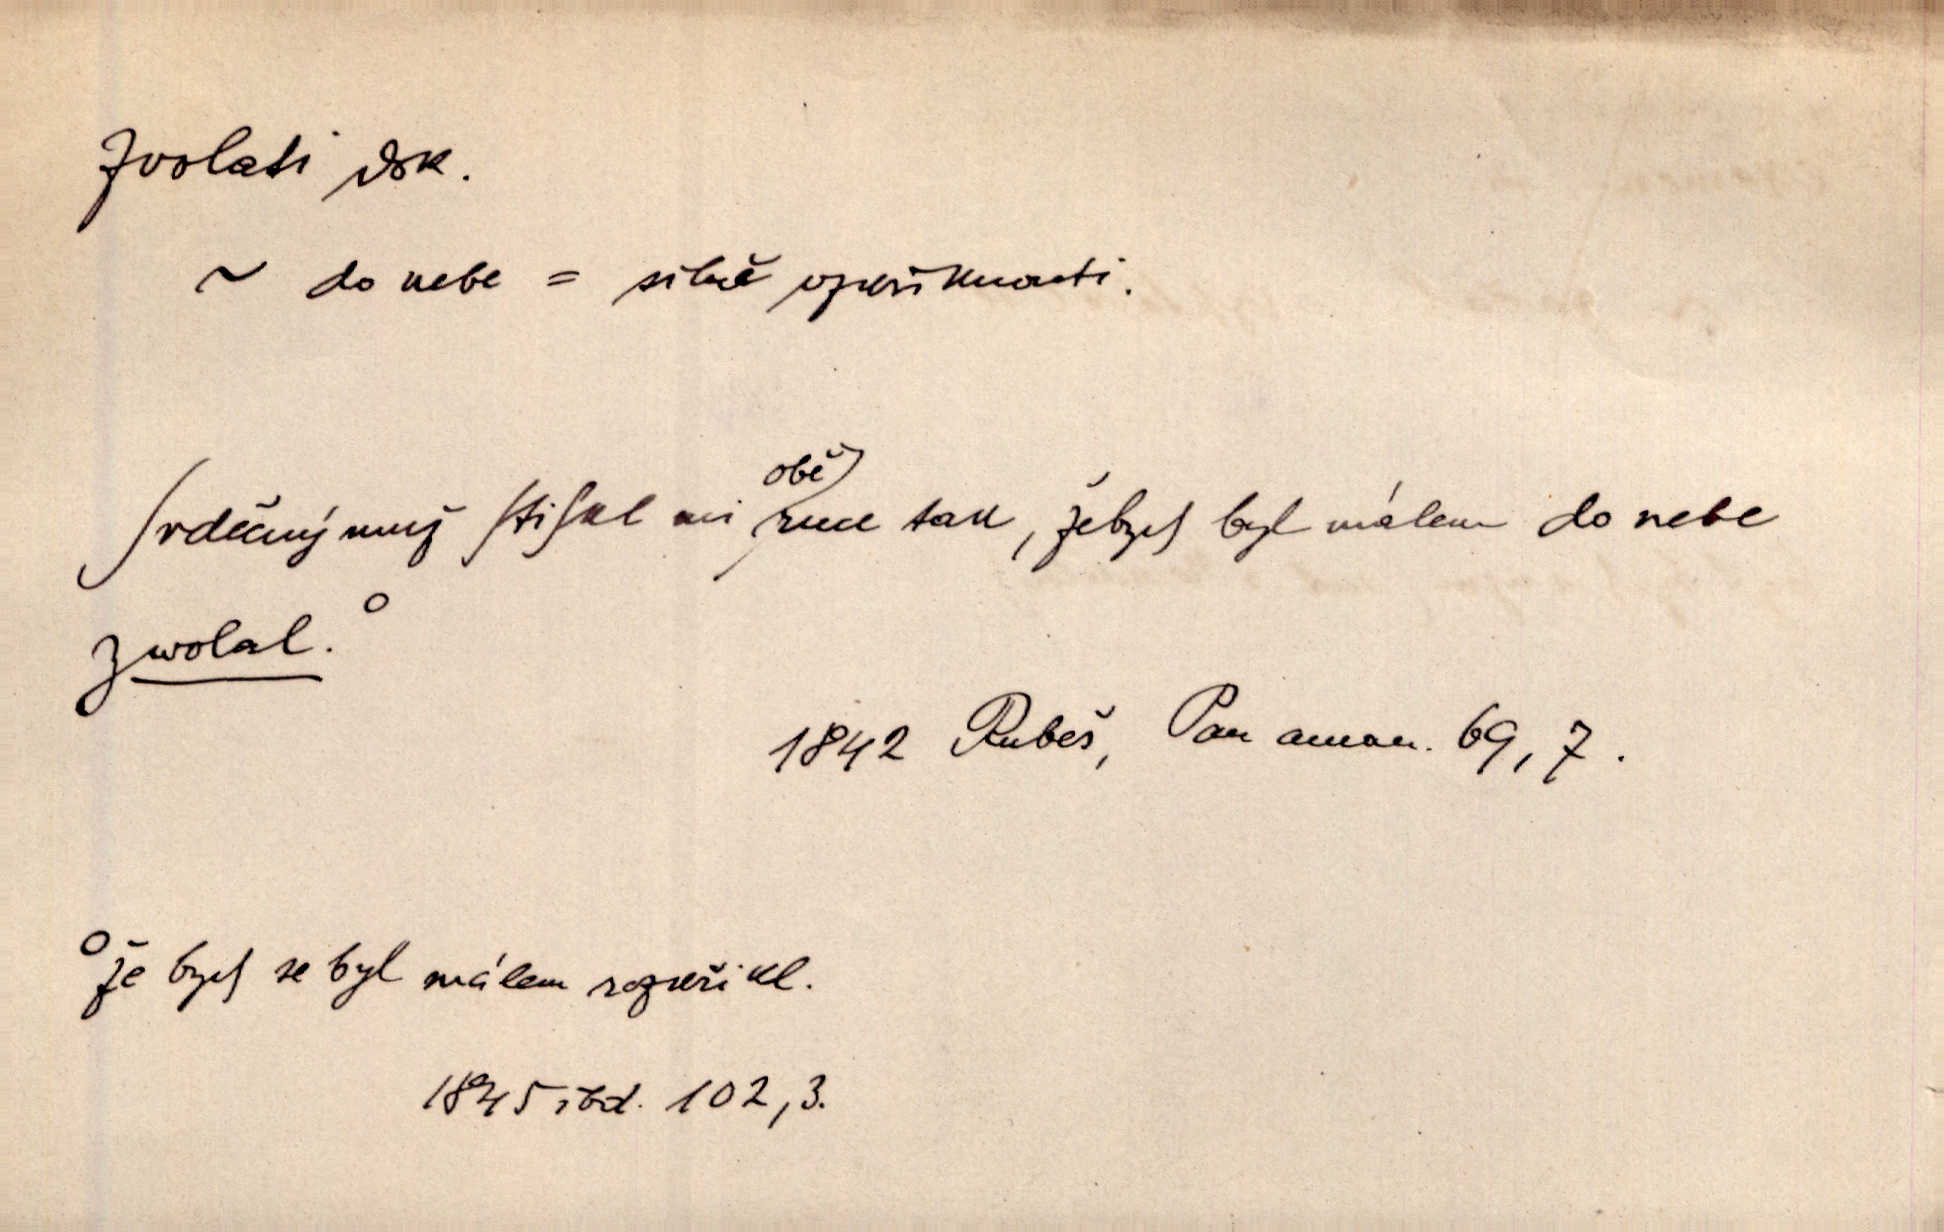 zvolati dok.
~ do nebe = silně vzkřiknouti.
Srdečný muž stiskl mi obě ruce tak, žebych byl málem do nebe
zwolal.°
1842 Rubeš, Pan aman. 69,7.
°že bych se byl málem rozkřikl.
1845 ibd. 102,3.